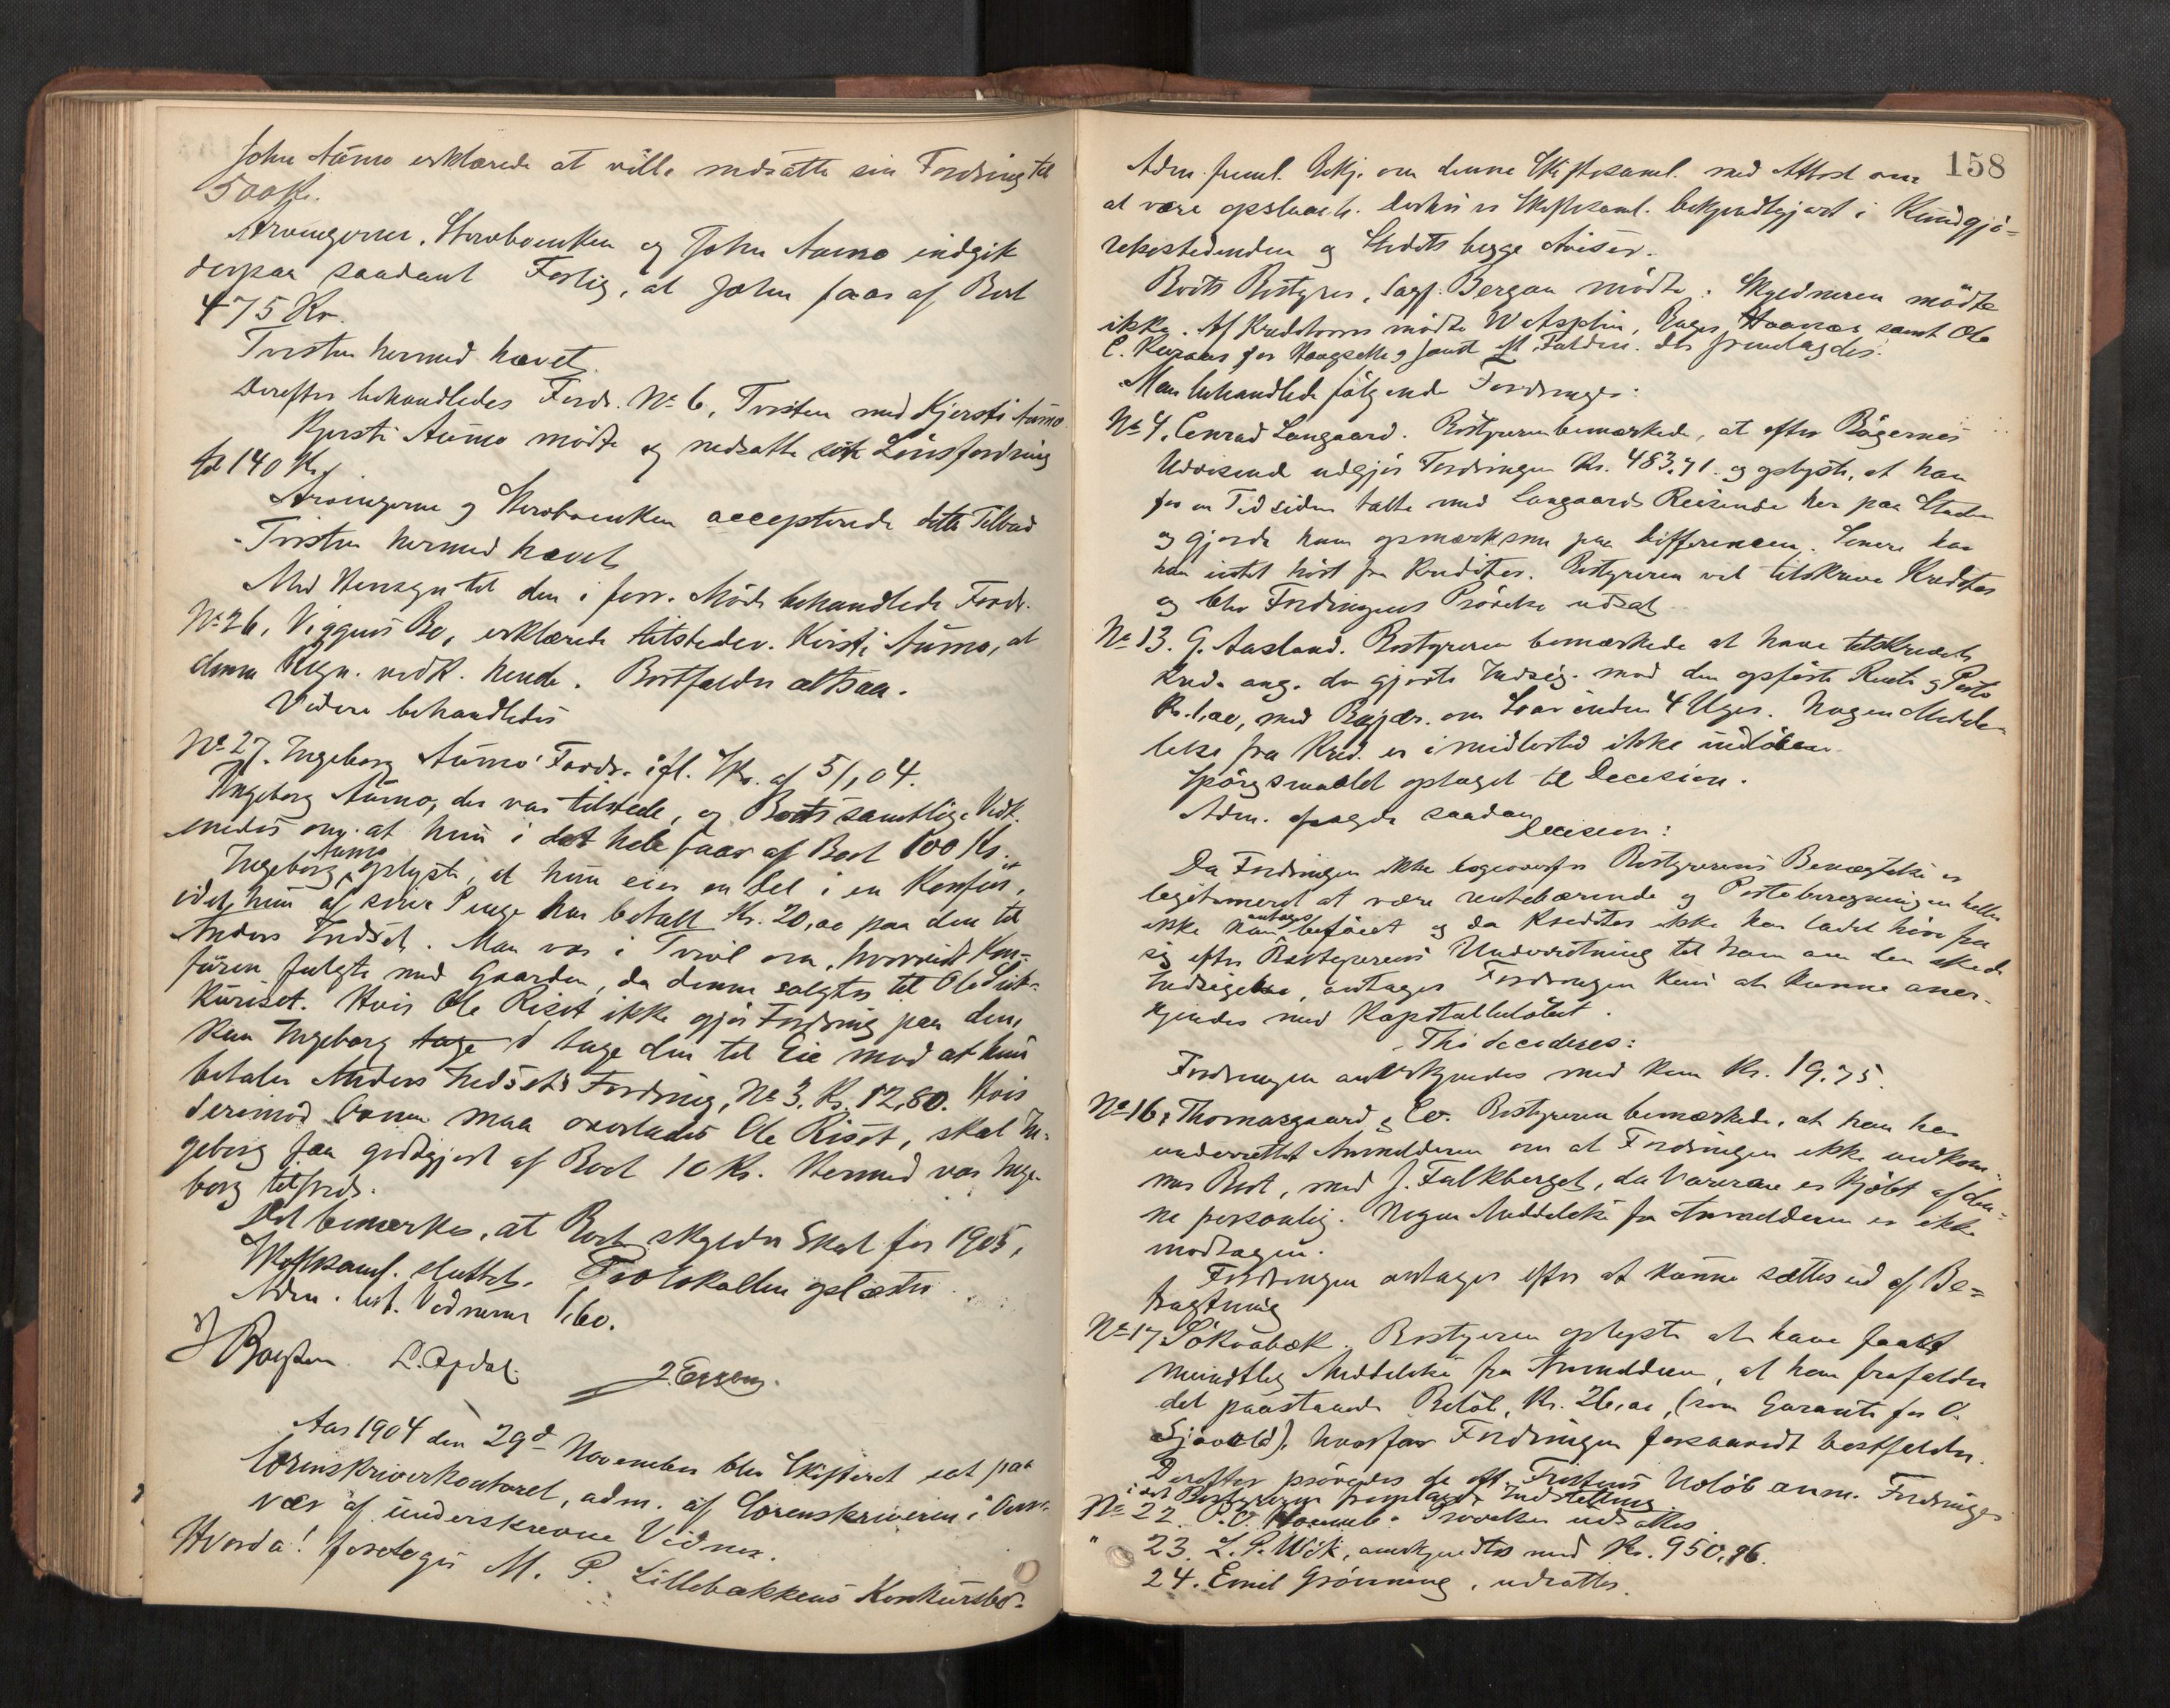 John Aúmo erklærede at ville nedsætte sin Fordring til
500 Kr.
Arvingerne, Stervboenken og John Aumo indgik
derpaa saadant Forlig, at John faar af Boet
475 Kr.
Tvisten hermed hævet.
Derefter behandledes Fordr. No 6, Tvisten med Kjersti Aúmo.
Kjersti Aúmo mødte og nedsatte sin Lønsfordring
til 140 Kr.
Arvingerne og Stervboenken accepterede dette Tilbud
Tvisten hermed hævet
Med Hensyn til den i forr. Møde behandlede Fordr.
No 26, Viggens Bo, erklærede tilstedev. Kirsti Aúmo, at
denne Regn. vedk. hende. Bortfalder altsaa.
Videre behandledes
No 27. Ingeborg Aúmo's Fordr. ifl. Skr. af 5/1 04.
Ingeborg Aúmo, der var tilstede, og Boets samtlige Vedk.
enedes om at hun i det hele faar af Boet 100 Kr.
Ingeborg Aumo oplyste, at hun eier en Del i en Komfur,
idet hun af sine Penge har betalt Kr. 20,00 paa den til
Anders Indset. Man var i Tvivl om, hvorvidt Kom-
fúren fulgte med Gaarden, da denne solgtes til Ole
Kúriset. Hvis Ole Riset ikke gjør Fordring paa den,
kan Ingeborg tage d tage den til Eie mod at hun
betaler Anders Indsets Fordring, No 3. Kr. 12,80. Hvis
derimod Ovnen maa overlades Ole Riset, skal In-
geborg faa godtgjort af Boet 10 Kr. Hermed var Inge-
borg tilfreds.
Det bemærkes, at Boet skylder Skat for 1905,
Skiftesaml. sluttet. Protokollen oplæstes
Adm. bet. Vidnerne 1,60.
L. Opdal.
Aar 1904 den 29d November blev Skifteret sat paa
Sorenskriverkontoret, adm. af Sorenskriveren i Over-
vær af underskrevne Vidner.
Hvorda! foretoges M. P. Lillebakkens Konkúrsbo-
158
Adm. freml. Bekj. om denne Skiftesaml. med Attest om
at være opslaaet. Derhos er Skiftesaml. bekjendtgjort i Kúndgjø-
relsestidenden og Stedets begge Aviser.
Boets Bestyrer, Sagf. Bergan mødte. Skyldneren mødte
ikke. Af Kreditorer mødte W Asphin, Enger, Haanæs samt Ole
C. for og samt efl. Fuldm. der fremlagdes.
Man behandlede følgende Fordringer:
No 4. Conrad Langaard. Bestyreren bemærkede, at efter Bøgernes
Udvisende udgjør Fordringen Kr. 483,71 og oplyste, at han
for en Tid siden talte med Langaards Reisende her paa Stedet
og gjorde ham opmærksom paa Differencen. Senere har
han intet hørt fra Kreditor. Bestyreren vil tilskrive Kreditor
og blev Fordringens Prøvelse udsat
No 13. G. Aasland. Bestyreren bemærkede at have tilskrevet
Kred. ang. den gjorte Indsig. mod den opførte Rente og Porto
Kr. 1,00, med Begjær. om Svar inden 4 Uger. Nogen Medde-
lelse fra Kred. er imidlertid ikke indløben.
Spørgsmaalet optaget til Decision.
Adm. afsagde saadan
Decision:
Da Fordringen ikke ligeoverfor Bestyrerens Benægtelse er
legitimeret at være rentebærende og Portoberegningen heller
ikke kan antages beføiet og da Kreditor ikke har ladet høre fra
sig efter Bestyrerens Underretning til ham om den skede
Indsigelse, antages Fordringen kun at kunne aner-
kjendes med Kapitalbeløbet.
Thi decideres:
Fordringen anerkjendes med kun Kr. 19,75.
No 16. Thomasgaard & Co. Bestyreren bemærkede, at han har
underrettet Anmelderen om at Fordringen ikke vedkom-
mer Boet, med J. Falkberget, da Varerne er kjøbt af den-
ne personlig. Nogen Meddelelse fra Anmelderen er ikke
modtagen.
Fordringen antages efter at kunne sættes ud af Be-
tragtning
No 17 Søkvabæk. Bestyreren oplyste at have faaet
mundtlig Meddelelse fra Anmelderen, at han frafalder
det paastaaede Beløb, Kr. 26,00, (som Garanti for O.
Sjøvold), hvorfor Fordringen forsaavidt bortfalder.
Derefter prøvedes de eft. Fristens Udløb anm. Fordringer
idet Bestyreren fremlagde Indstilling.
No 22. Prøvelsen udsattes
" 23. L. P. Wik, anerkjendtes med Kr. 950,96.
24. Emil Grønning, udsattes.